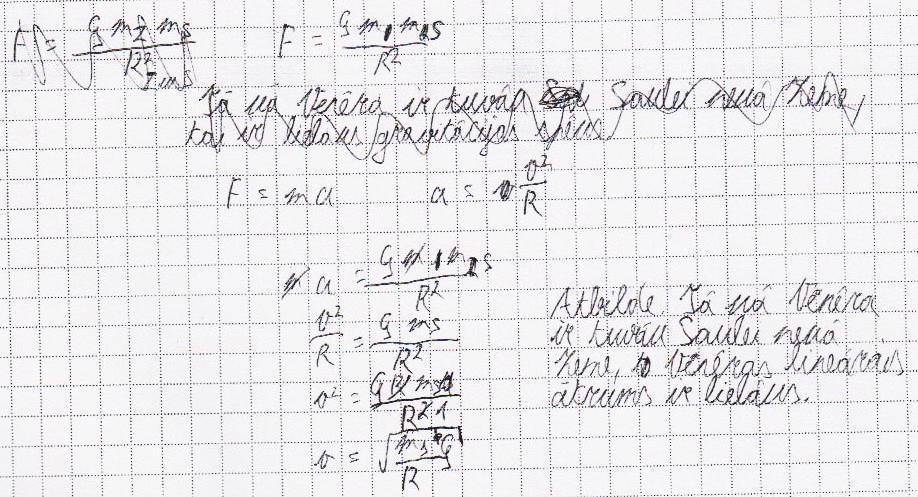 F = G m₁ m₂s / R²
Tā kā Venēra ir tuvāk Saulei nekā Zeme,
tai ir lielāks gravitācijas spēks
F = ma a = v²/R
m a = G m₁ m₂s / R²
v²/R = G ms / R²
v² = G R ms / R² 1
v = √(ms G / R)
Atbilde Tā kā Venēra
ir tuvāk Saulei nekā
Zeme, Venēras lineārais
ātrums ir lielāks.